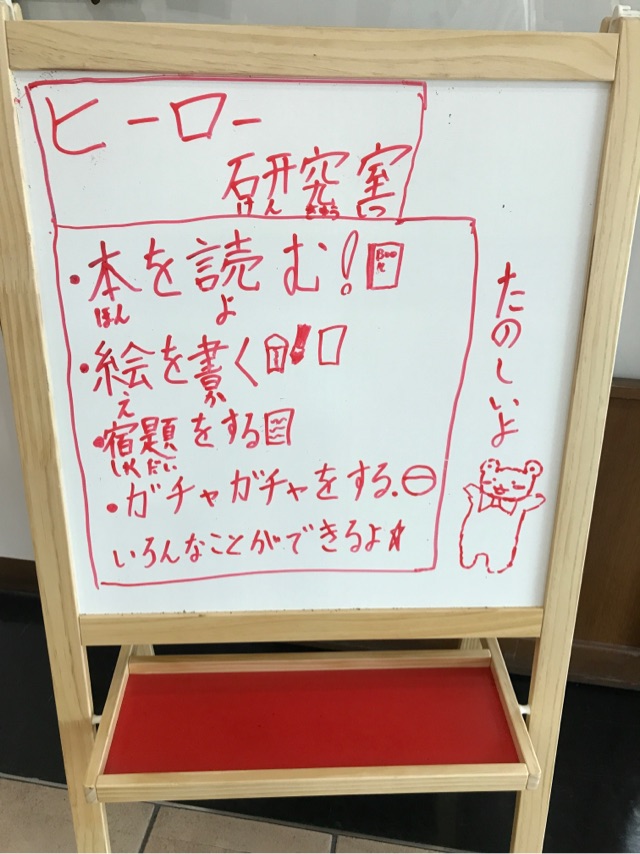 ヒーロー
研究室
けんきゅうしつ
・本を読む!
ほん よ
・絵を書く
え か
・宿題をする
しゅくだい
・ガチャガチャをする.
いろんなことができるよ☆
たのしいよ